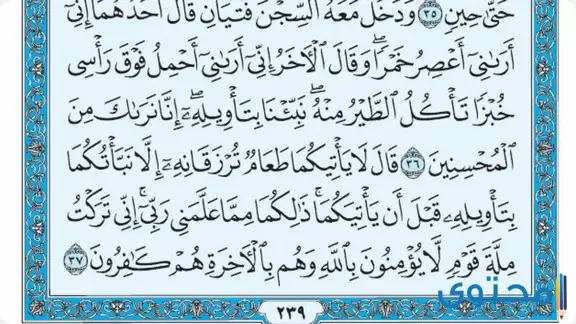 حَتَّىٰ حِينٍ ٣٥ وَدَخَلَ مَعَهُ السِّجْنَ فَتَيَانِ قَالَ أَحَدُهُمَا إِنِّي
أَرَىٰنِي أَعْصِرُ خَمْرًا وَقَالَ الْآخَرُ إِنِّي أَرَىٰنِي أَحْمِلُ فَوْقَ رَأْسِي
خُبْزًا تَأْكُلُ الطَّيْرُ مِنْهُ نَبِّئْنَا بِتَأْوِيلِهِ إِنَّا نَرَىٰكَ مِنَ
الْمُحْسِنِينَ ٣٦ قَالَ لَا يَأْتِيكُمَا طَعَامٌ تُرْزَقَانِهِ إِلَّا نَبَّأْتُكُمَا
بِتَأْوِيلِهِ قَبْلَ أَن يَأْتِيَكُمَا ذَٰلِكُمَا مِمَّا عَلَّمَنِي رَبِّي إِنِّي تَرَكْتُ
مِلَّةَ قَوْمٍ لَّا يُؤْمِنُونَ بِاللَّهِ وَهُم بِالْآخِرَةِ هُمْ كَافِرُونَ ٣٧
٢٣٩
محتوى